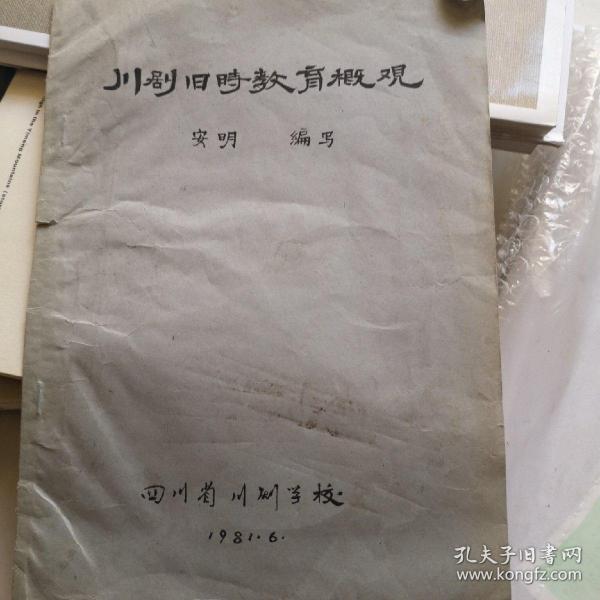 川剧旧時教育概观
安明 编写
四川省川剧学校
1981.6.
to the Yimeng Mountains
孔夫子旧书网
www.kongfz.com